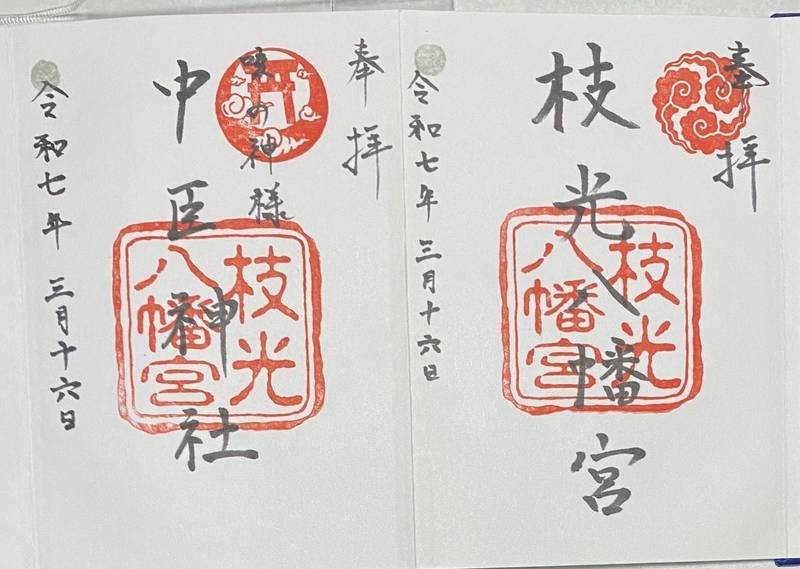 奉拝
枝光八幡宮
枝光
八幡宮
令和七年 三月十六日
奉拝
味の神様
中臣神社
枝光
八幡宮
令和七年 三月十六日